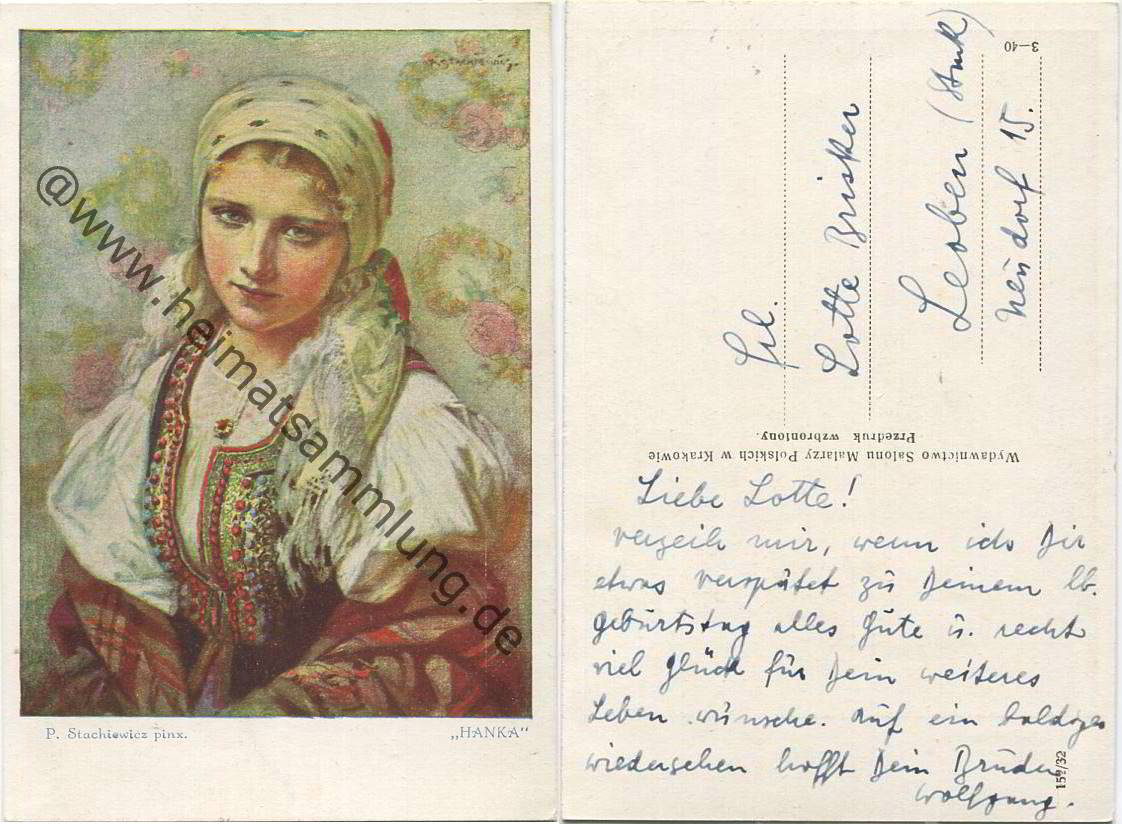 P. Stachiewicz.
@www.heimatsammlung.de
P. Stachiewicz pinx.
„HANKA“
3—40
Frl.
Lotte Brisker
Leoben (Stmk)
Neudorf 15.
Wydawnictwo Salonu Malarzy Polskich w Krakowie
Przedruk wzbroniony.
Liebe Lotte!
verzeih mir, wenn ich Dir
etwas verspätet zu Deinem lb.
Geburtstag alles Gute u. recht
viel Glück für Dein weiteres
Leben wünsche. Auf ein baldiges
wiedersehen hofft Dein Bruder
Wolfgang.